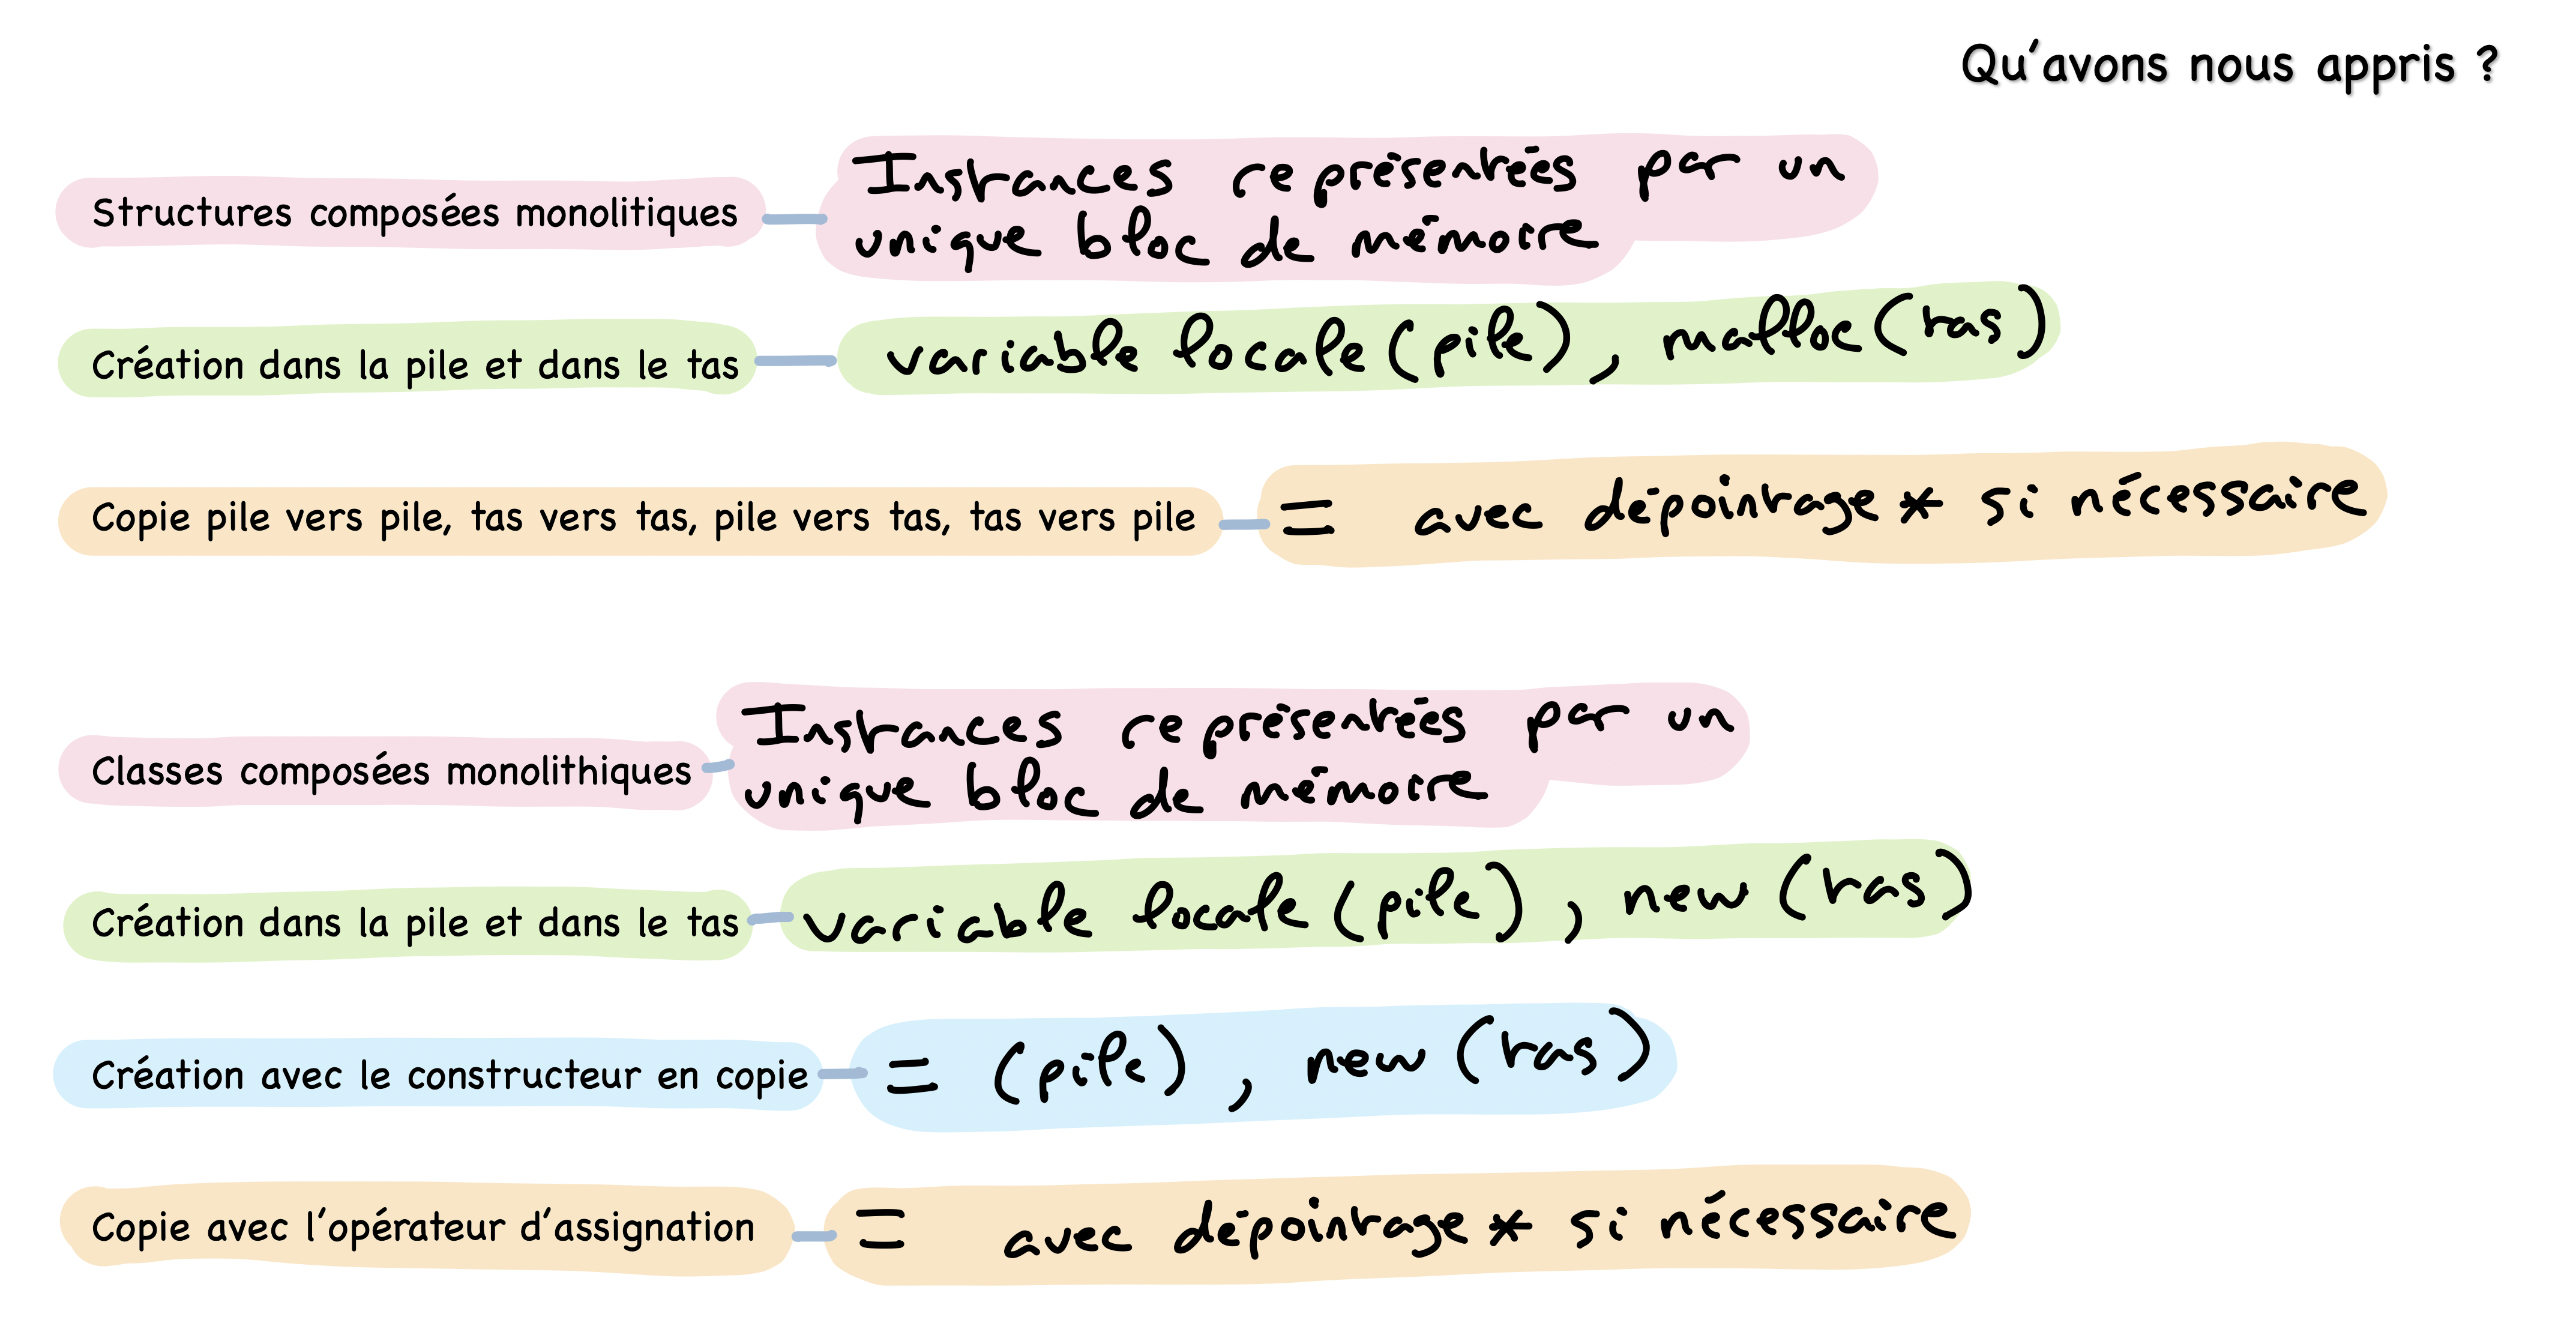 Qu'avons nous appris ?
Structures composées monolitiques
Instances représentées par un
unique bloc de mémoire
Création dans la pile et dans le tas
variable locale (pile), malloc (tas)
Copie pile vers pile, tas vers tas, pile vers tas, tas vers pile
= avec dépointage * si nécessaire
Classes composées monolithiques
Instances représentées par un
unique bloc de mémoire
Création dans la pile et dans le tas
variable locale (pile), new (tas)
Création avec le constructeur en copie
= (pile), new (tas)
Copie avec l'opérateur d'assignation
= avec dépointage * si nécessaire